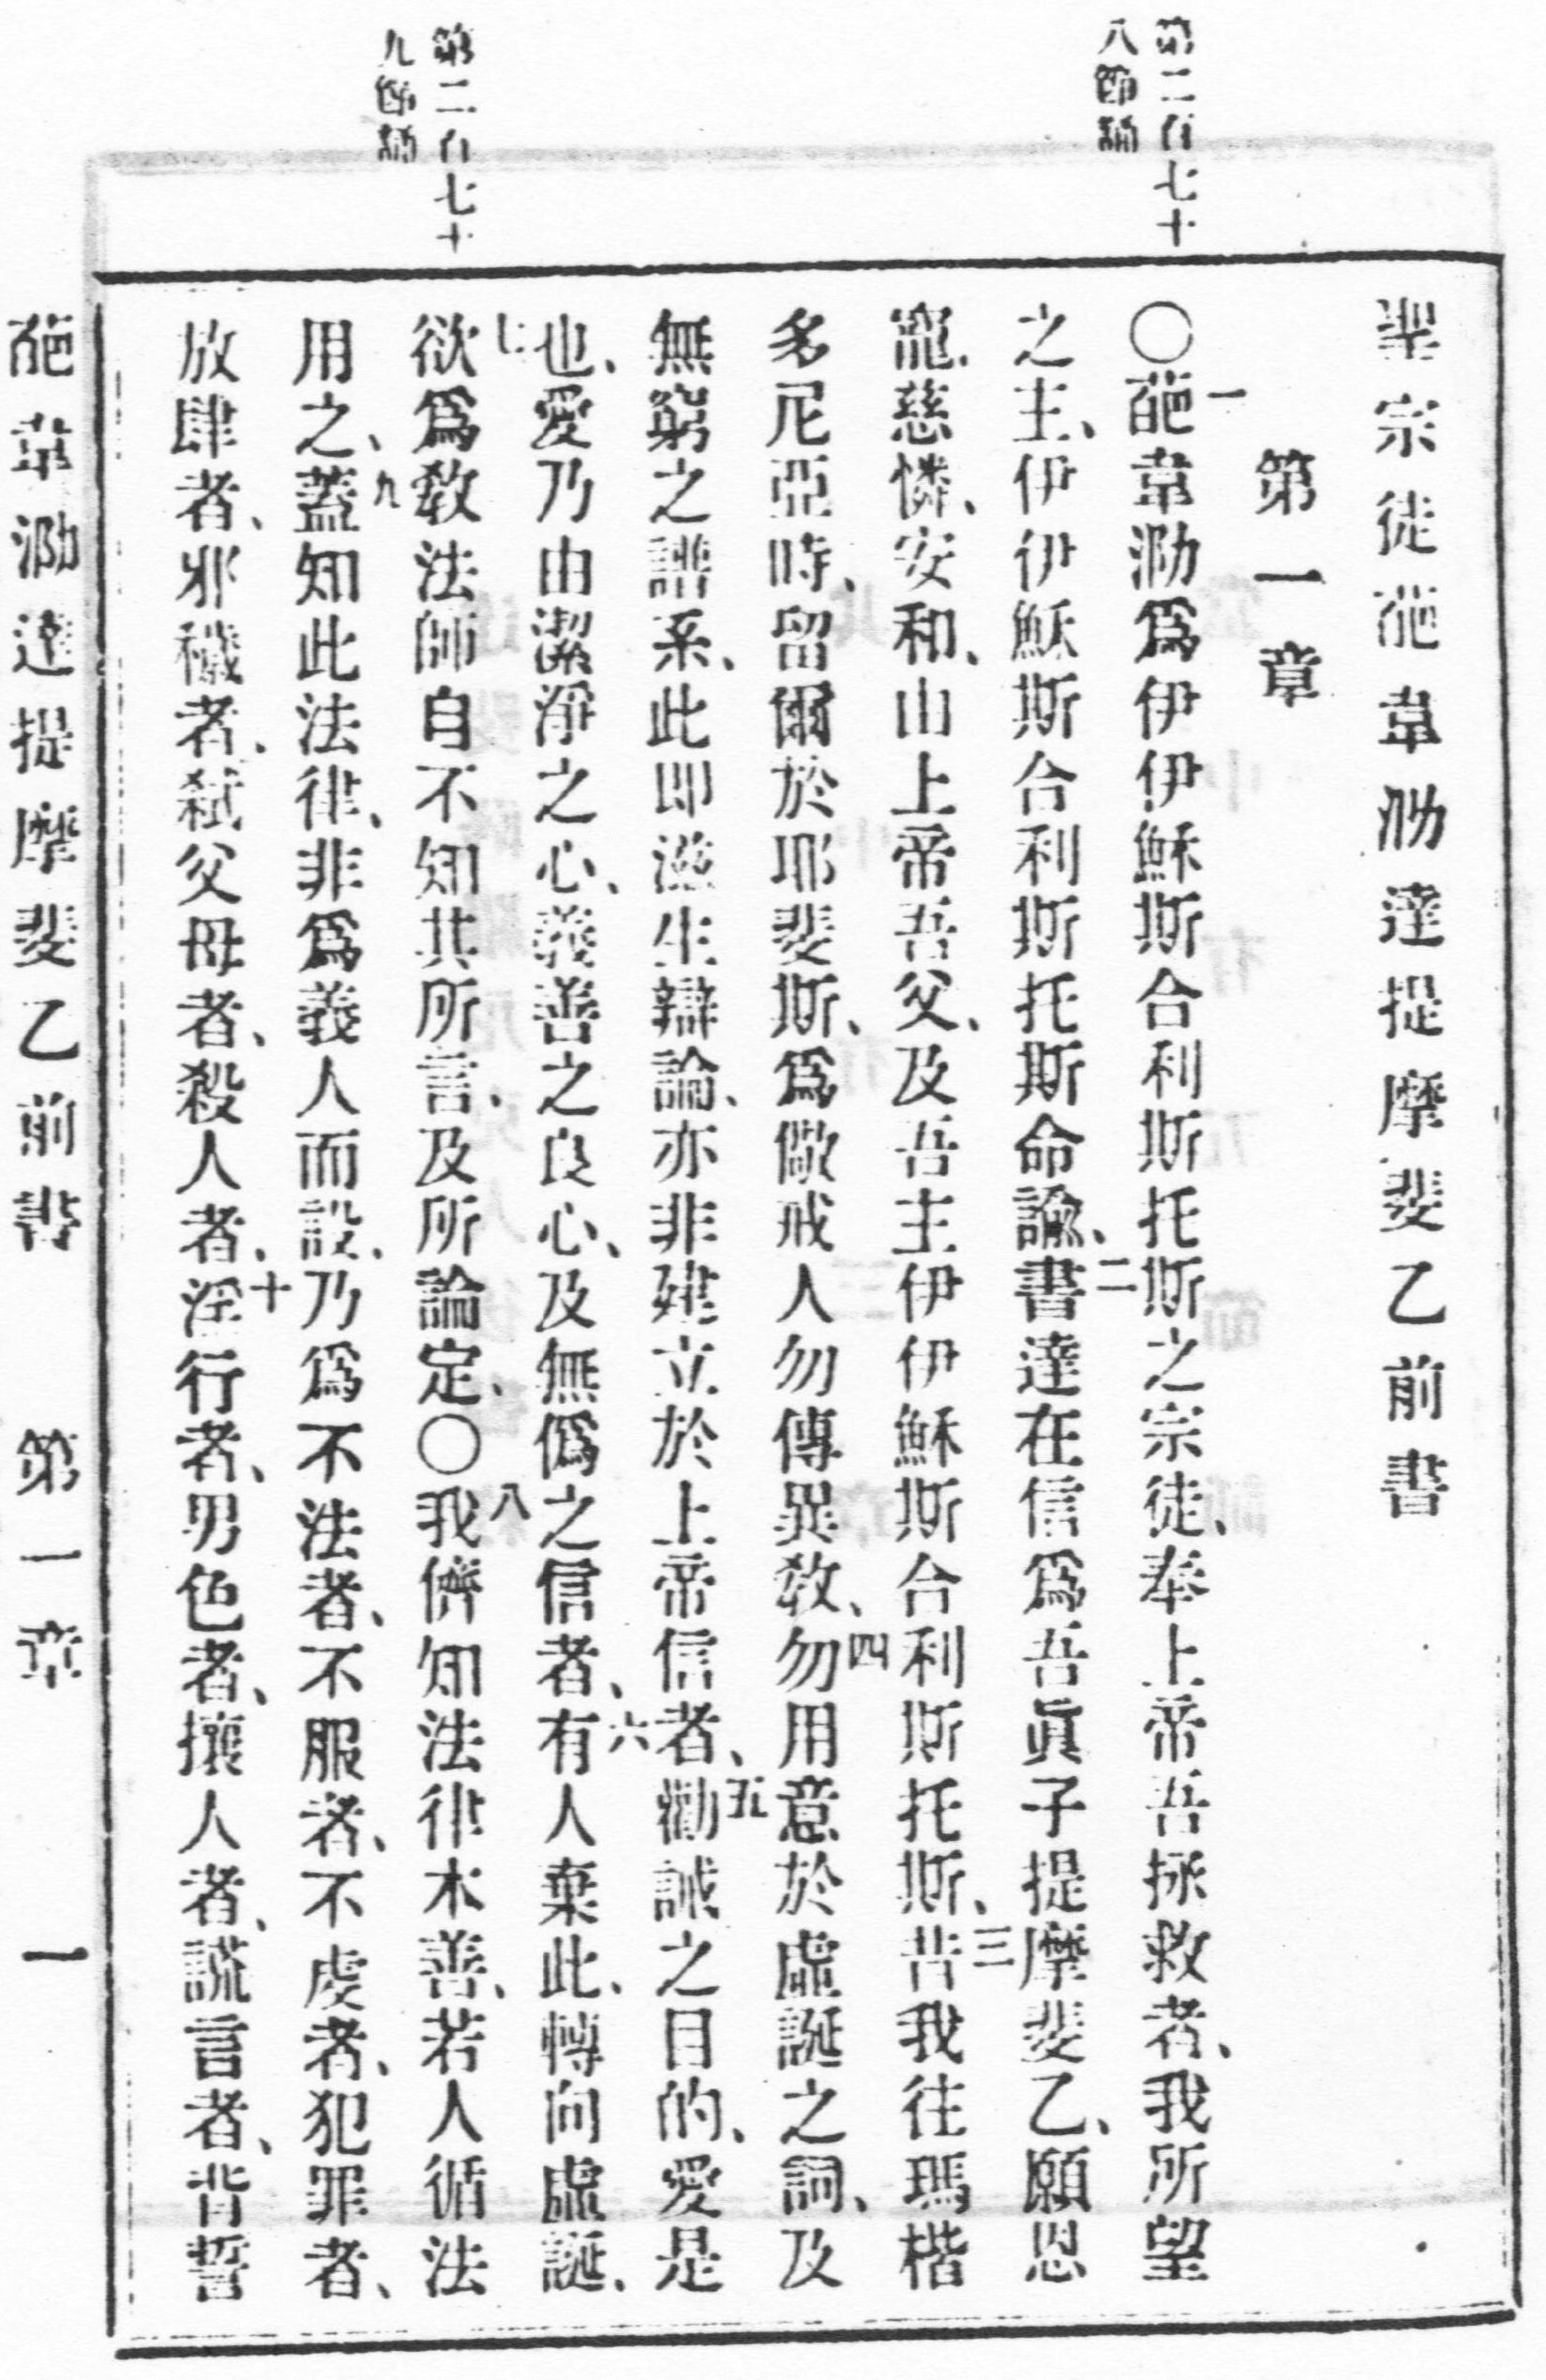 第二百七十
八節誦
第二百七十
九節誦
聖宗徒葩韋泐達提摩斐乙前書
第一章
〇一葩韋泐爲伊伊穌斯合利斯托斯之宗徒、奉上帝吾拯救者、我所望
之主、伊伊穌斯合利斯托斯命諭、二書達在信爲吾眞子提摩斐乙、願恩
寵、慈憐、安和、由上帝吾父、及吾主伊伊穌斯合利斯托斯、三昔我往瑪楷
多尼亞時、留爾於耶斐斯、爲儆戒人勿傳異敎、四勿用意於虛誕之詞、及
無窮之譜系、此即滋生辯論、亦非建立於上帝信者、五勸誡之目的、愛是
也、愛乃由潔淨之心、義善之良心、及無僞之信者、六有人棄此、轉向虛誕、
七欲爲敎法師自不知其所言、及所論定、〇八我儕知法律本善、若人循法
用之、九蓋知此法律、非爲義人而設、乃爲不法者、不服者、不虔者、犯罪者、
放肆者、邪穢者、弒父母者、殺人者、十淫行者、男色者、攘人者、謊言者、背誓
葩韋泐達提摩斐乙前書 第一章 一